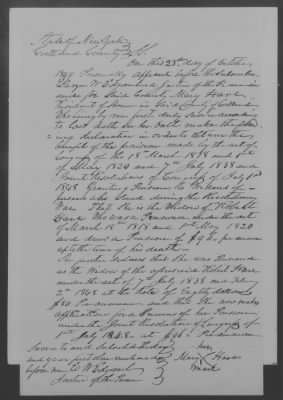 State of New York
Cortland County } SS.
On this 23d day of October
1849 Personally appeared before the Subscriber
Edgar W Edgcomb a Justice of the Peace in
and for Said County Mary Hare
Resident of Homer in Said County of Cortland
Who being by me first duly Sworn according
to Law doth on her oath make the follow
ing declaration in order to obtain the
benefit of the provision made by the act of
Congress of the 18 March 1818 and 1st
of May 1820 7th July 1838 and
Joint Resolutions of Congress of July 1st
1848 Granting Pensions to Widows of
persons who Served during the Revolutionary
War. That She is the Widow of
Hare Who was a Pensioner under the act
of March 18th 1818 and 1st May 1820
and drew a Pension of $96 per annum
up to the time of his death
She further declares that She was Pensioned
as the Widow of the aforesaid Hare
under the act of 7th July 1838 and
2d 1848 at the rate of Eighty dollars
$80 Per annum and that She now makes
application for a Increase of her Pension
under the Joint Resolution of Congress of
1st July 1848 at $96 Per annum
Sworn to and Subscribed the day
and year first above mentioned
before me E W Edgcomb
Justice of the Peace
her
Mary Hare
mark